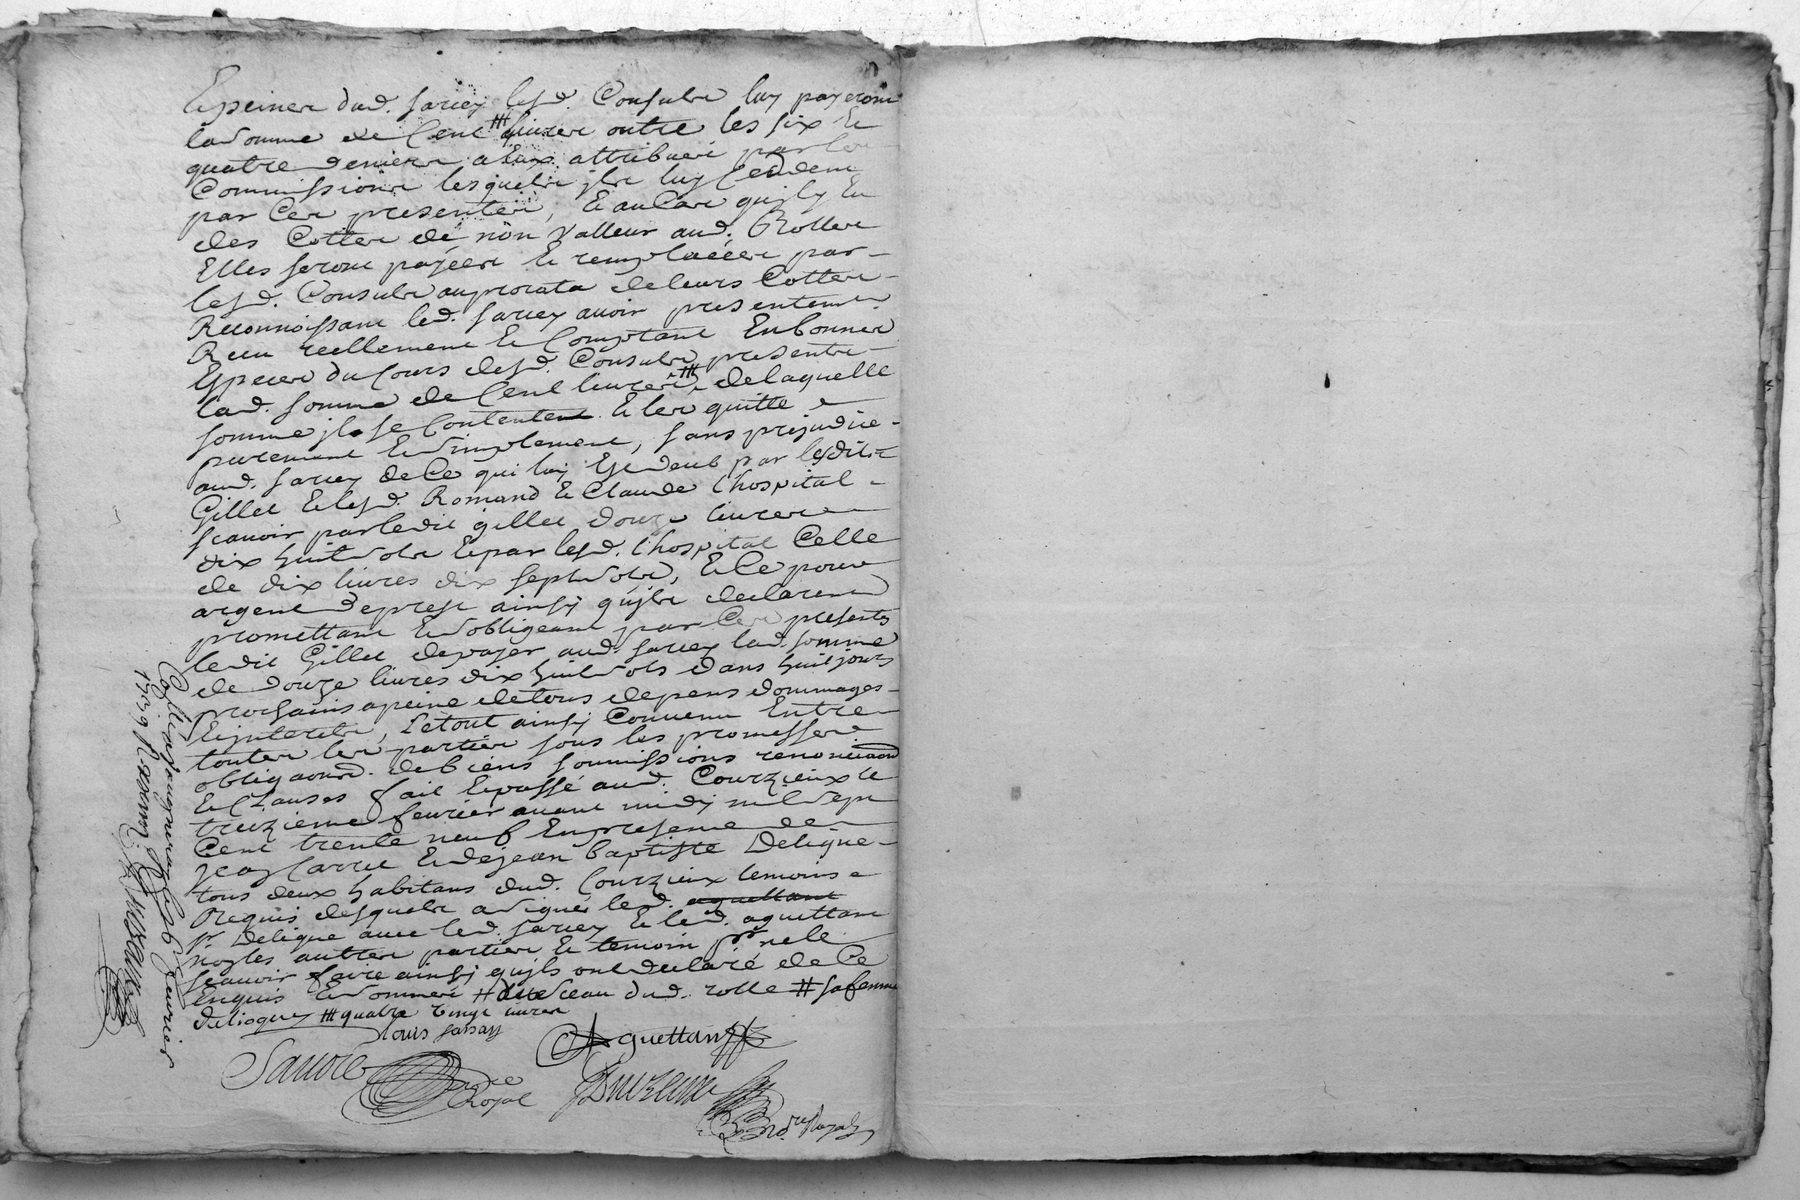 Et peines dud. Sarcey lesd. Consuls luy payeront
la somme de Cent # livres outre les six et
quatre deniers a eux attribuéé par les
Commissions lesquels ils luy Ceddent
par Ces presentes, Et au Cas quil y Eu
des Cottes de non Valleur aud. Rolles
Elles seront payéés et remplacéés par
lesd. Consuls au prorata de leurs Cottes
Reconnoissant led. Sarcey avoir presentement
Receu reellement et Comptant En bonnes
Especes du Cours desd. Consuls presents
lad. somme de Cent livres # de laquelle
somme il se Contentent Et les quitte
purement Et simplement, sans prejudice
aud. Sarcey de Ce qui luy Est deub par lesdits
Gillet Et lesd. Romand et Claude Lhospital
scavoir par ledit gillet douze livres
dix huit sols Et par lesd. Lhospital Celle
de dix livres dix sept sols, Et Ce pour
argent depresté ainsy quils declarent
promettant Et sobligeant par Ces presents
ledit Gillet de payer aud. Sarcey lad. somme
de douze livres dix huit sols dans huit jours
prochains a peine de tous depens dommages
Et interets, Letout ainsy Convenu Entre
toutes les parties sous les promesses
obligaons. de biens soumissions renonciaons
Et Clauses fait Et passé aud. Courzieux le
treizieme fevrier avant midy mil sept
Cent trente neuf En presence de
Jean Carrie Et de jean baptiste Deligne
tous deux habitans dud. Courzieux temoins
Requis desquels a signé led. aquettant
sr. Deligne avec led. Sarcey Et led. aguettant
non les autres parties Et temoin pour ne le
scavoir faire ainsy quils ont declaré de Ce
Enquis Et sommés # dud. rolle # sa femme
# quatre vingt livres
Louis Sarsay
Aguettant
Savoie
Royal
no.re Royal
1739